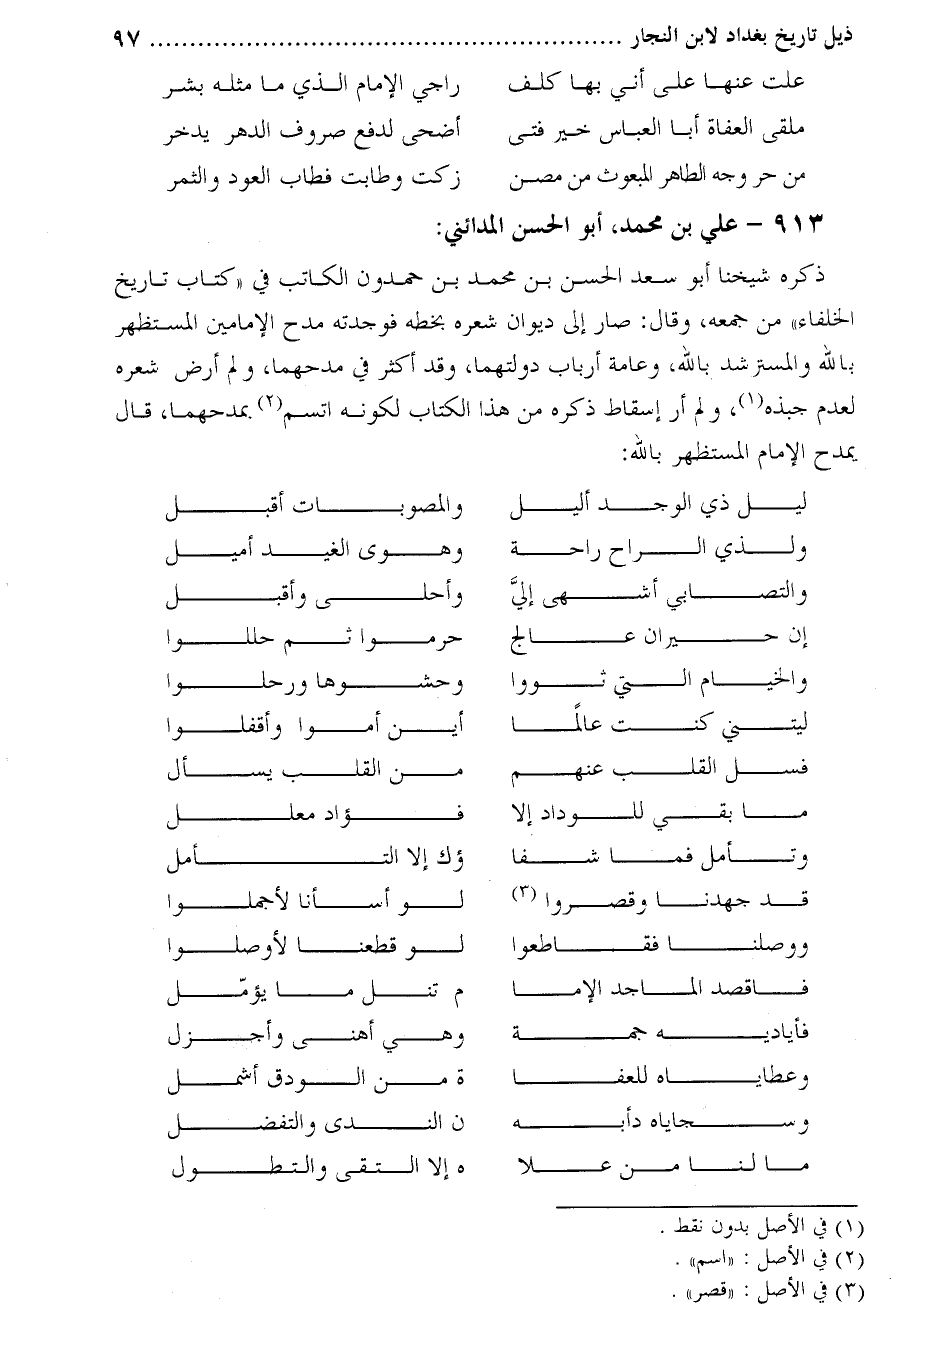 ذيل تاريخ بغداد لابن النجار ........................................................... ٩٧
علت عنها على أني بها كلف راجي الإمام الذي ما مثله بشر
ملقى العفاة أبا العباس خير فتى أضحى لدفع صروف الدهر يدخر
من حر وجه الطاهر المبعوث من مصن زكت وطابت فطاب العود والثمر
٩١٣ – علي بن محمد، أبو الحسن المدائني:
ذكره شيخنا أبو سعد الحسن بن محمد بن حمدون الكاتب في «كتاب تاريخ
الخلفاء» من جمعه، وقال: صار إلى ديوان شعره بخطه فوجدته مدح الإمامين المستظهر
بالله والمسترشد بالله، وعامة أرباب دولتهما، وقد أكثر في مدحهما، ولم أرض شعره
لعدم جبذه(١)، ولم أر إسقاط ذكره من هذا الكتاب لكونه اتسم(٢) بمدحهما، قال
يمدح الإمام المستظهر بالله:
ليل ذي الوجد أليل والمصوبات أقبل
ولذي الراح راحة وهوى الغيد أميل
والتصابي أشهى إليَّ وأحلى وأقبل
إن حيران عالج حرموا ثم حللوا
والخيام التي ثووا وحشوها ورحلوا
ليتني كنت عالمًا أين أموا وأقفلوا
فسل القلب عنهم من القلب يسأل
ما بقي للوداد إلا فؤاد معلل
وتأمل فما شفا ؤك إلا التأمل
قد جهدنا وقصروا (٣) لو أسأنا لأجملوا
ووصلنا فقاطعوا لو قطعنا لأوصلوا
فاقصد الماجد الإما م تنل ما يؤمّل
فأياديه جمة وهي أهنى وأجزل
وعطاياه للعفا ة من الودق أشمل
وسجاياه دأبه ن الندى والتفضل
ما لنا من علا ه إلا التقى والتطول
(١) في الأصل بدون نقط .
(٢) في الأصل : «اسم» .
(٣) في الأصل : «قصر» .